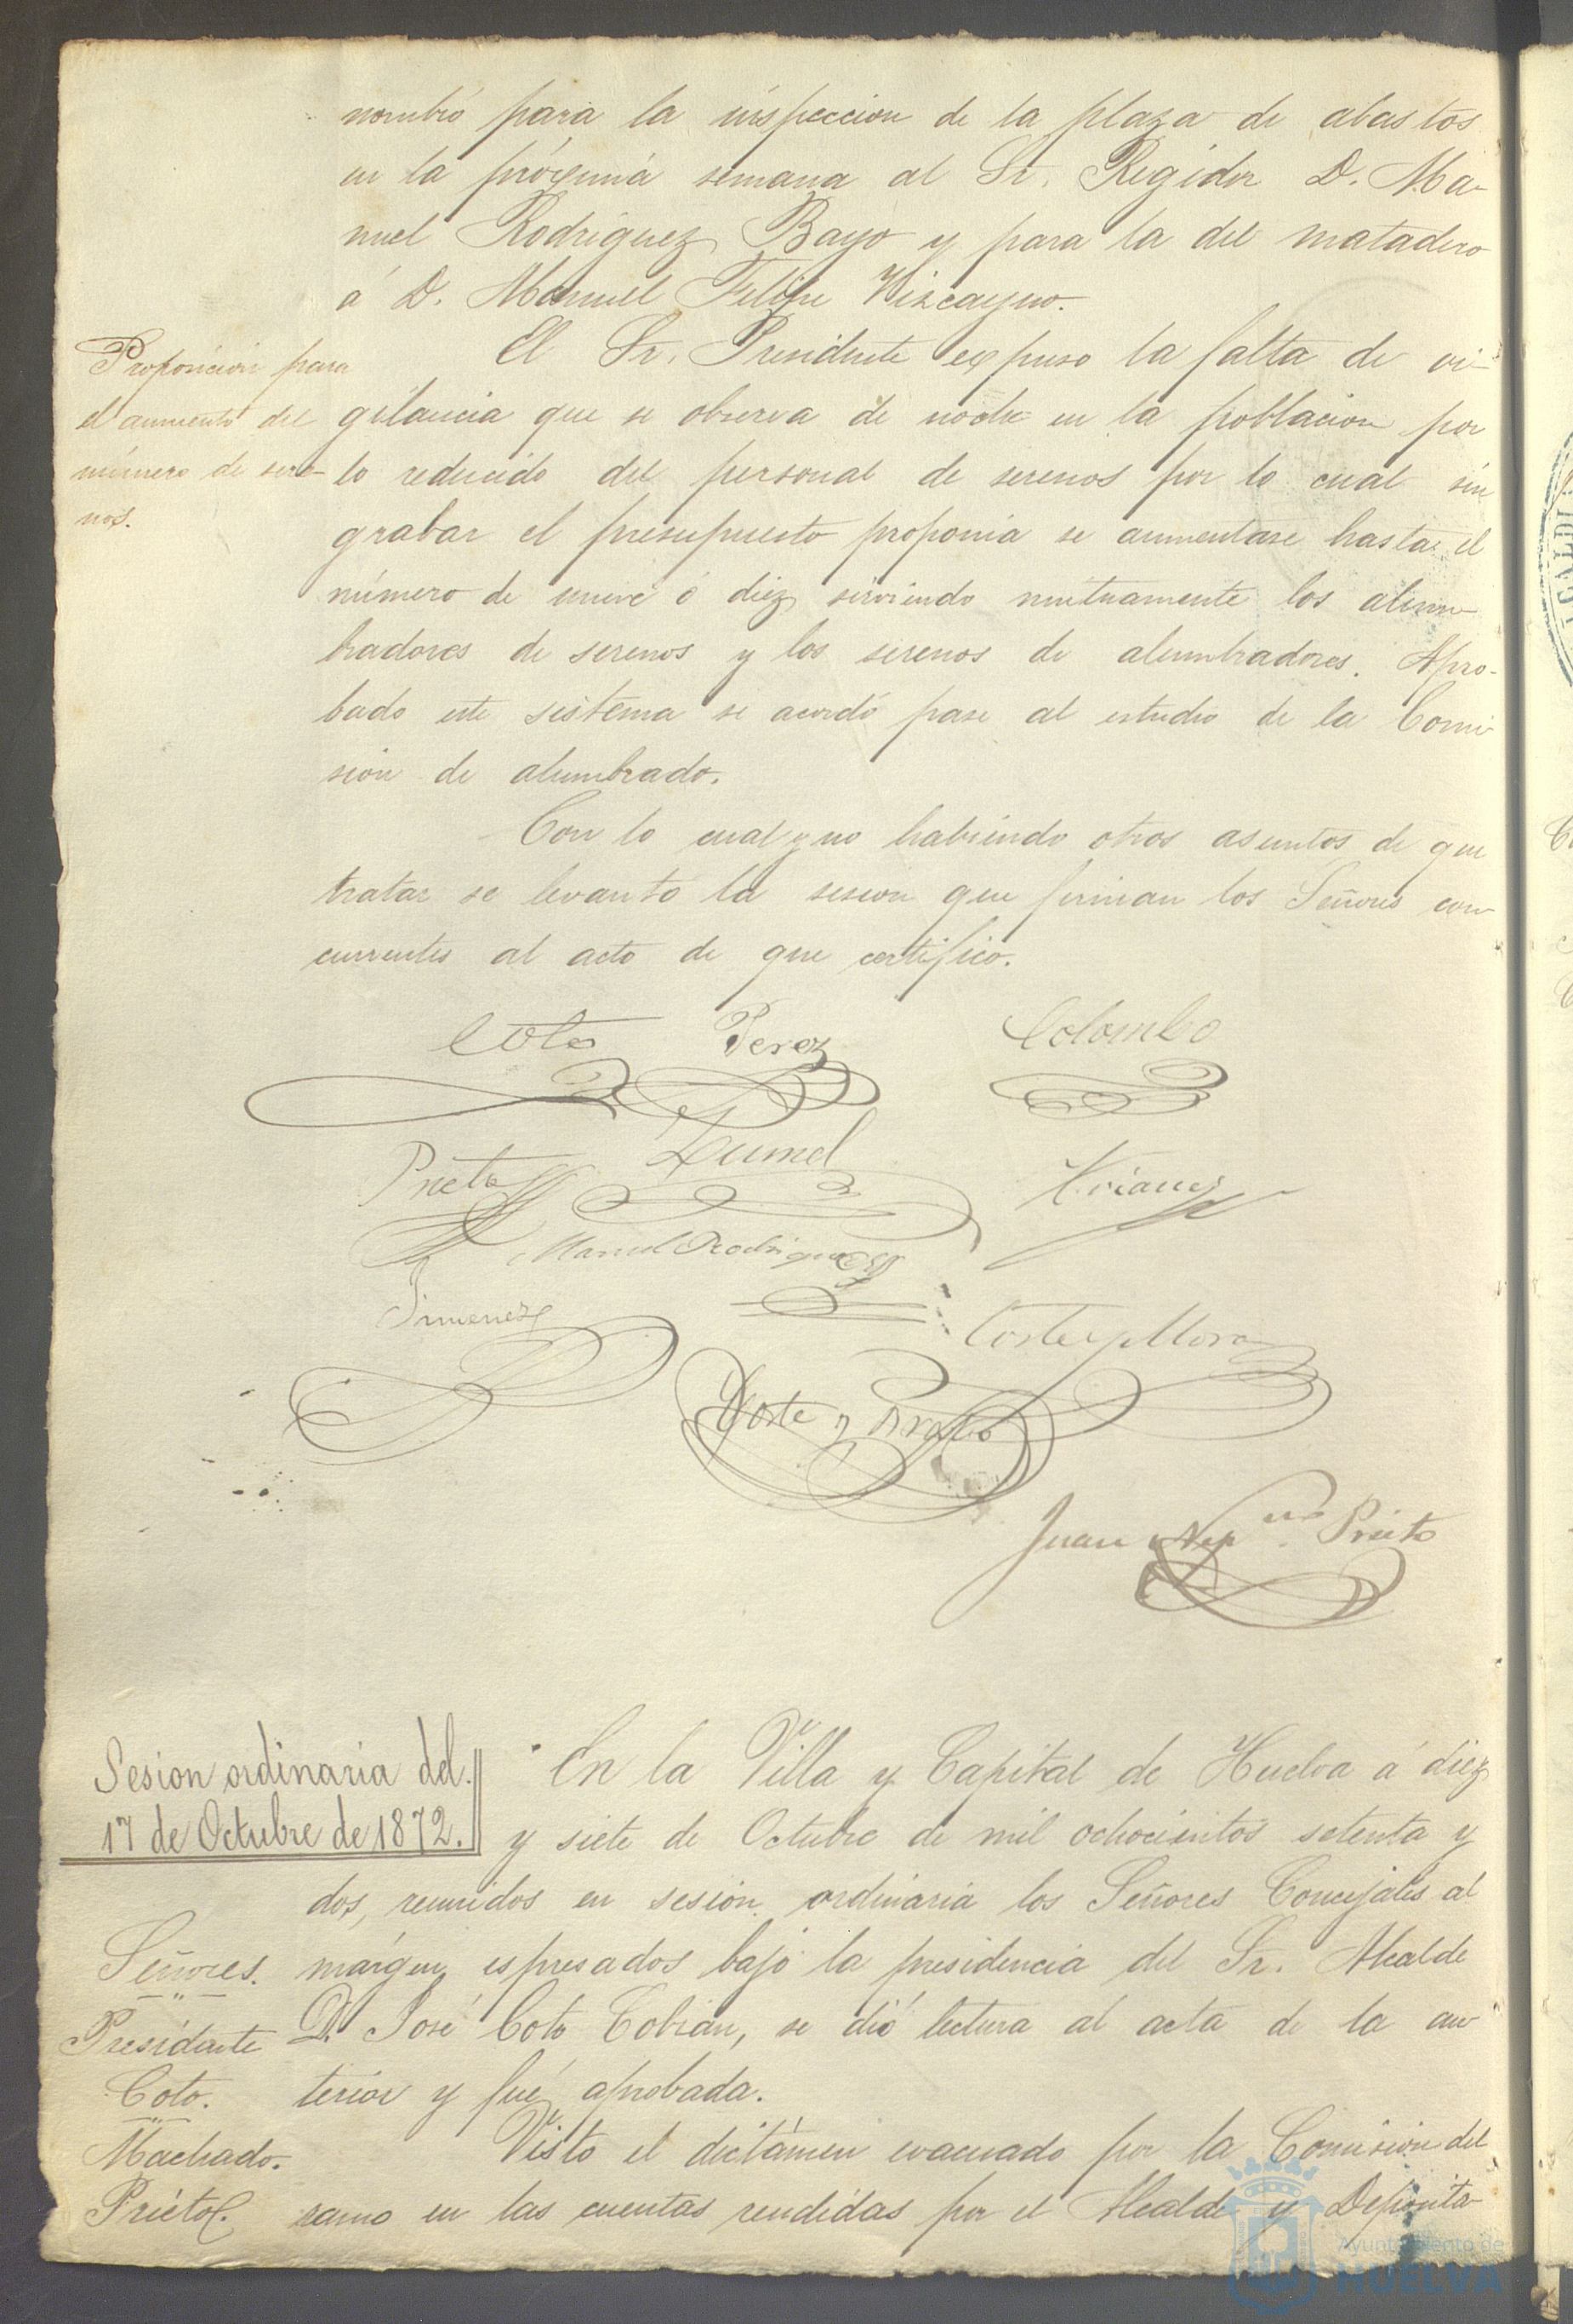 nombró para la inspeccion de la plaza de abastos
en la próxima semana al Sr. Regidor D. Ma-
nuel Rodriguez Bayo y para la del matadero
á D. Manuel Felipe Vizcayno.
Proposicion para
el aumento del
número de sere-
nos.
El Sr. Presidente expuso la falta de vi-
gilancia que se observa de noche en la poblacion por
lo reducido del personal de serenos por lo cual sin
grabar el presupuesto proponia se aumentase hasta el
número de nueve ó diez sirviendo mutuamente los alum-
bradores de serenos y los serenos de alumbradores. Apro-
bado este sistema se acordó pase al estudio de la Comi-
sion de alumbrado.
Con lo cual y no habiendo otros asuntos de que
tratar se levantó la sesion que firman los Señores con-
currentes al acto de que certifico.
Coto Perez Colombo
Prieto
Manuel Rodriguez
Jimenez
Corte y Mora
Juan Nep.no Prieto
Sesion ordinaria del
17 de Octubre de 1872.
En la Villa y Capital de Huelva á diez
y siete de Octubre de mil ochocientos setenta y
dos, reunidos en sesion ordinaria los Señores Concejales al
márgen espresados bajo la presidencia del Sr. Alcalde
D. José Coto Cobian, se dió lectura al acta de la an-
terior y fué aprobada.
Señores.
Presidente
Coto.
Machado.
Prieto.
Visto el dictámen evacuado por la Comision del
ramo en las cuentas rendidas por el Alcalde y Deposita-
Ayuntamiento de
HUELVA